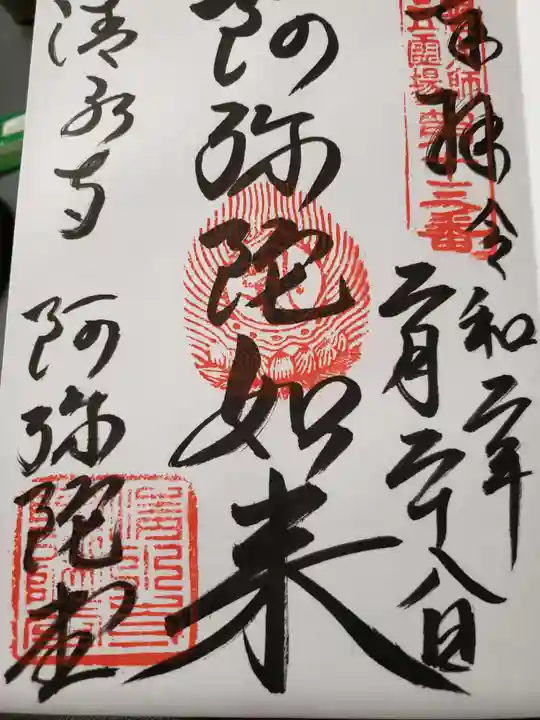 奉拝
令和二年
二月二十八日
阿弥陀如来
清水寺
阿弥陀堂
霊場
三番